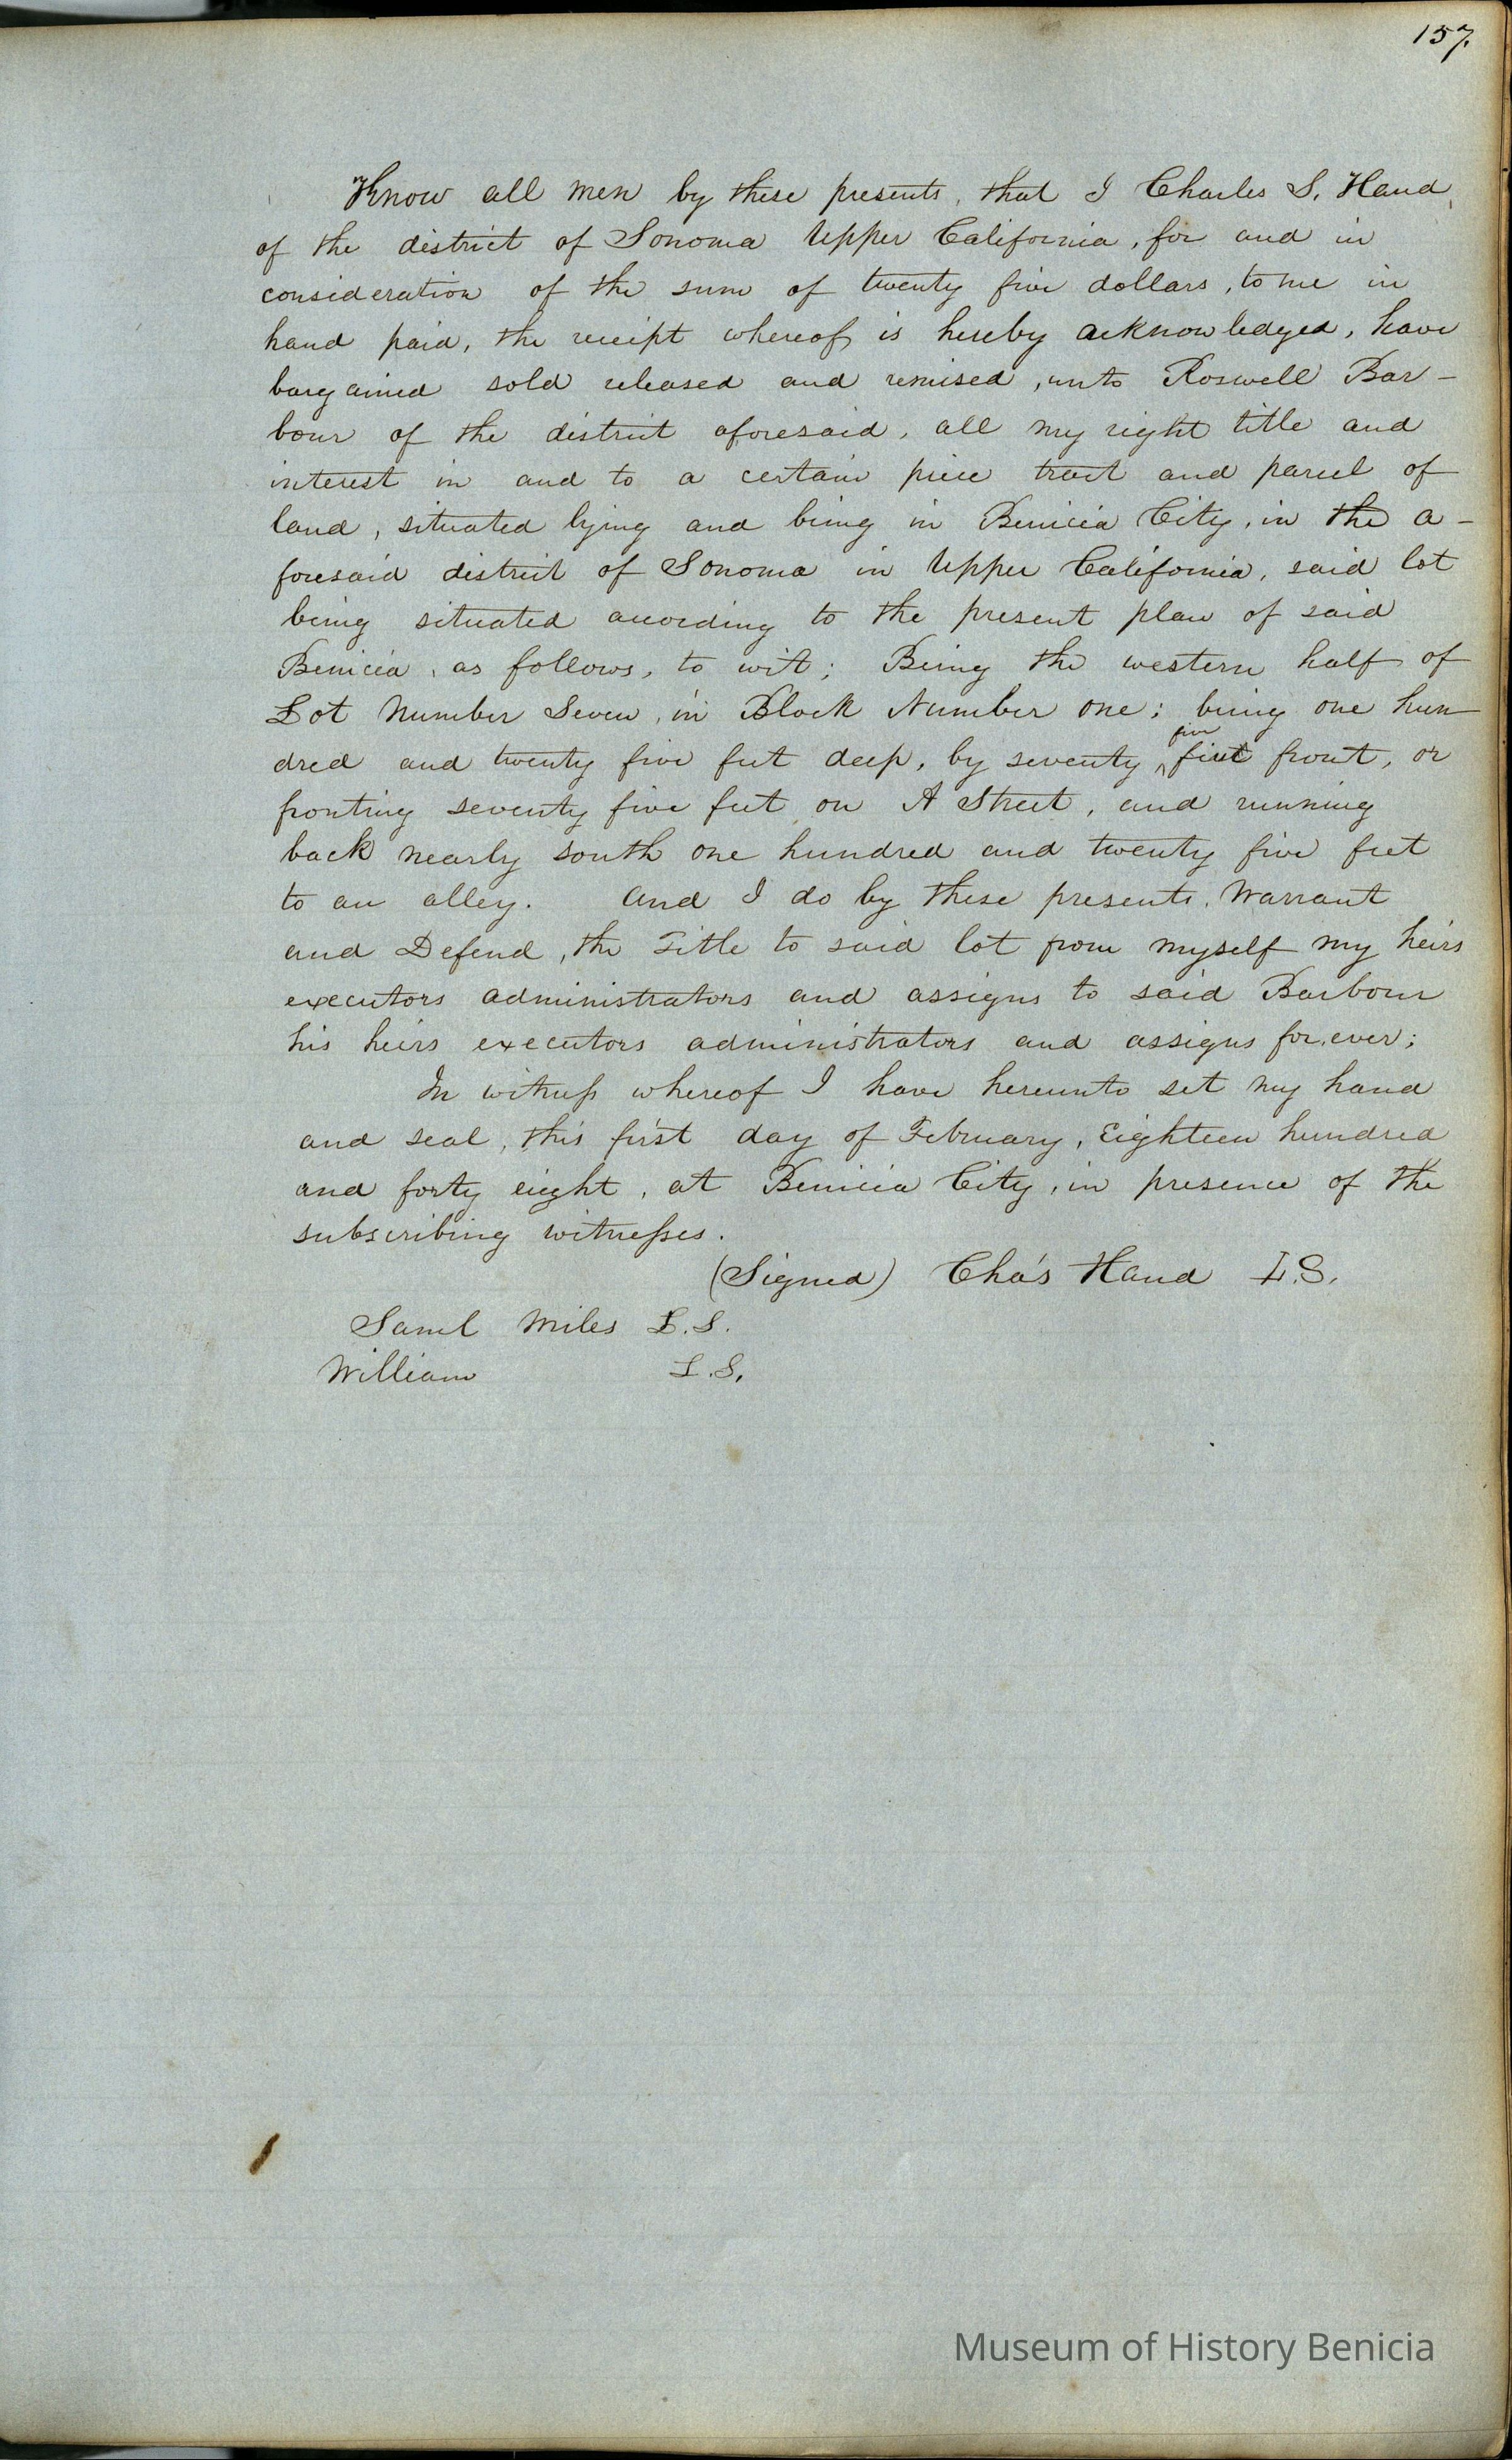 157.
Know all men by these presents, that I Charles S. Hand,
of the district of Sonoma Upper California, for and in
consideration of the sum of twenty five dollars, to me in
hand paid, the receipt whereof is hereby acknowledged, have
bargained sold released and remised, unto Roswell Bar-
bour of the district aforesaid, all my right title and
interest in and to a certain piece tract and parcel of
land, situated lying and being in Benicia City, in the a-
foresaid district of Sonoma in Upper California, said lot
being situated according to the present plan of said
Benicia, as follows, to wit; Being the western half of
Lot Number Seven, in Block Number one; being one hun
dred and twenty five feet deep, by seventy five feet front, or
fronting seventy five feet on A Street, and running
back nearly south one hundred and twenty five feet
to an alley. And I do by these presents, Warrant
and Defend, the Title to said lot from myself my heirs
executors administrators and assigns to said Barbour
his heirs executors administrators and assigns for.ever;
In witness whereof I have hereunto set my hand
and seal, this first day of February, Eighteen hundred
and forty eight, at Benicia City, in presence of the
subscribing witnesses.
(Signed) Cha's Hand L.S.
Saml Miles L.S.
William L.S.
Museum of History Benicia